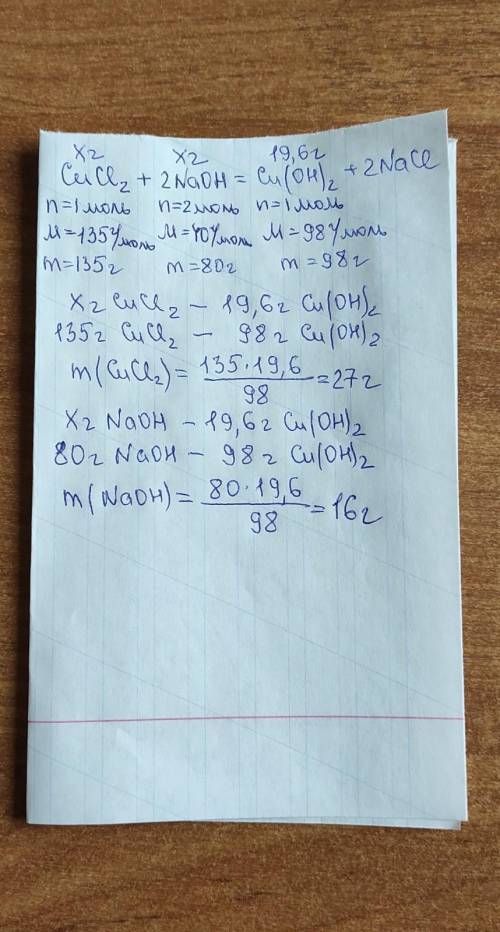 xг xг 19,6г
CuCl₂ + 2NaOH = Cu(OH)₂ + 2NaCl
n=1моль n=2моль n=1моль
M=135г/моль M=40г/моль M=98г/моль
m=135г m=80г m=98г
xг CuCl₂ – 19,6г Cu(OH)₂
135г CuCl₂ – 98г Cu(OH)₂
m(CuCl₂) = 135·19,6 / 98 = 27г
xг NaOH – 19,6г Cu(OH)₂
80г NaOH – 98г Cu(OH)₂
m(NaOH) = 80·19,6 / 98 = 16г